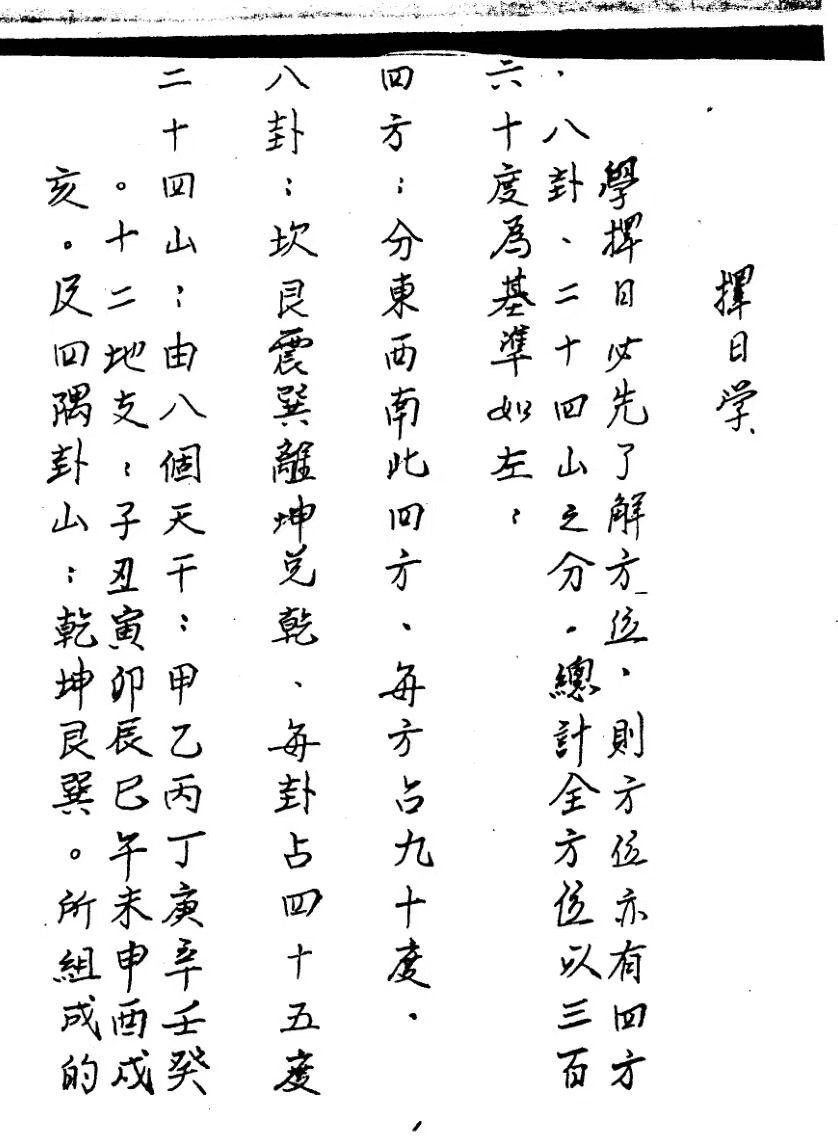 擇日学
學擇日必先了解方位、則方位亦有四方
、八卦、二十四山之分。總計全方位以三百
六十度為基準如左：
四方：分東西南北四方、每方占九十度。
八卦：坎艮震巽離坤兌乾、每卦占四十五度
二十四山：由八個天干：甲乙丙丁庚辛壬癸
。十二地支：子丑寅卯辰巳午未申酉戌
亥。及四隅卦山：乾坤艮巽。所組成的